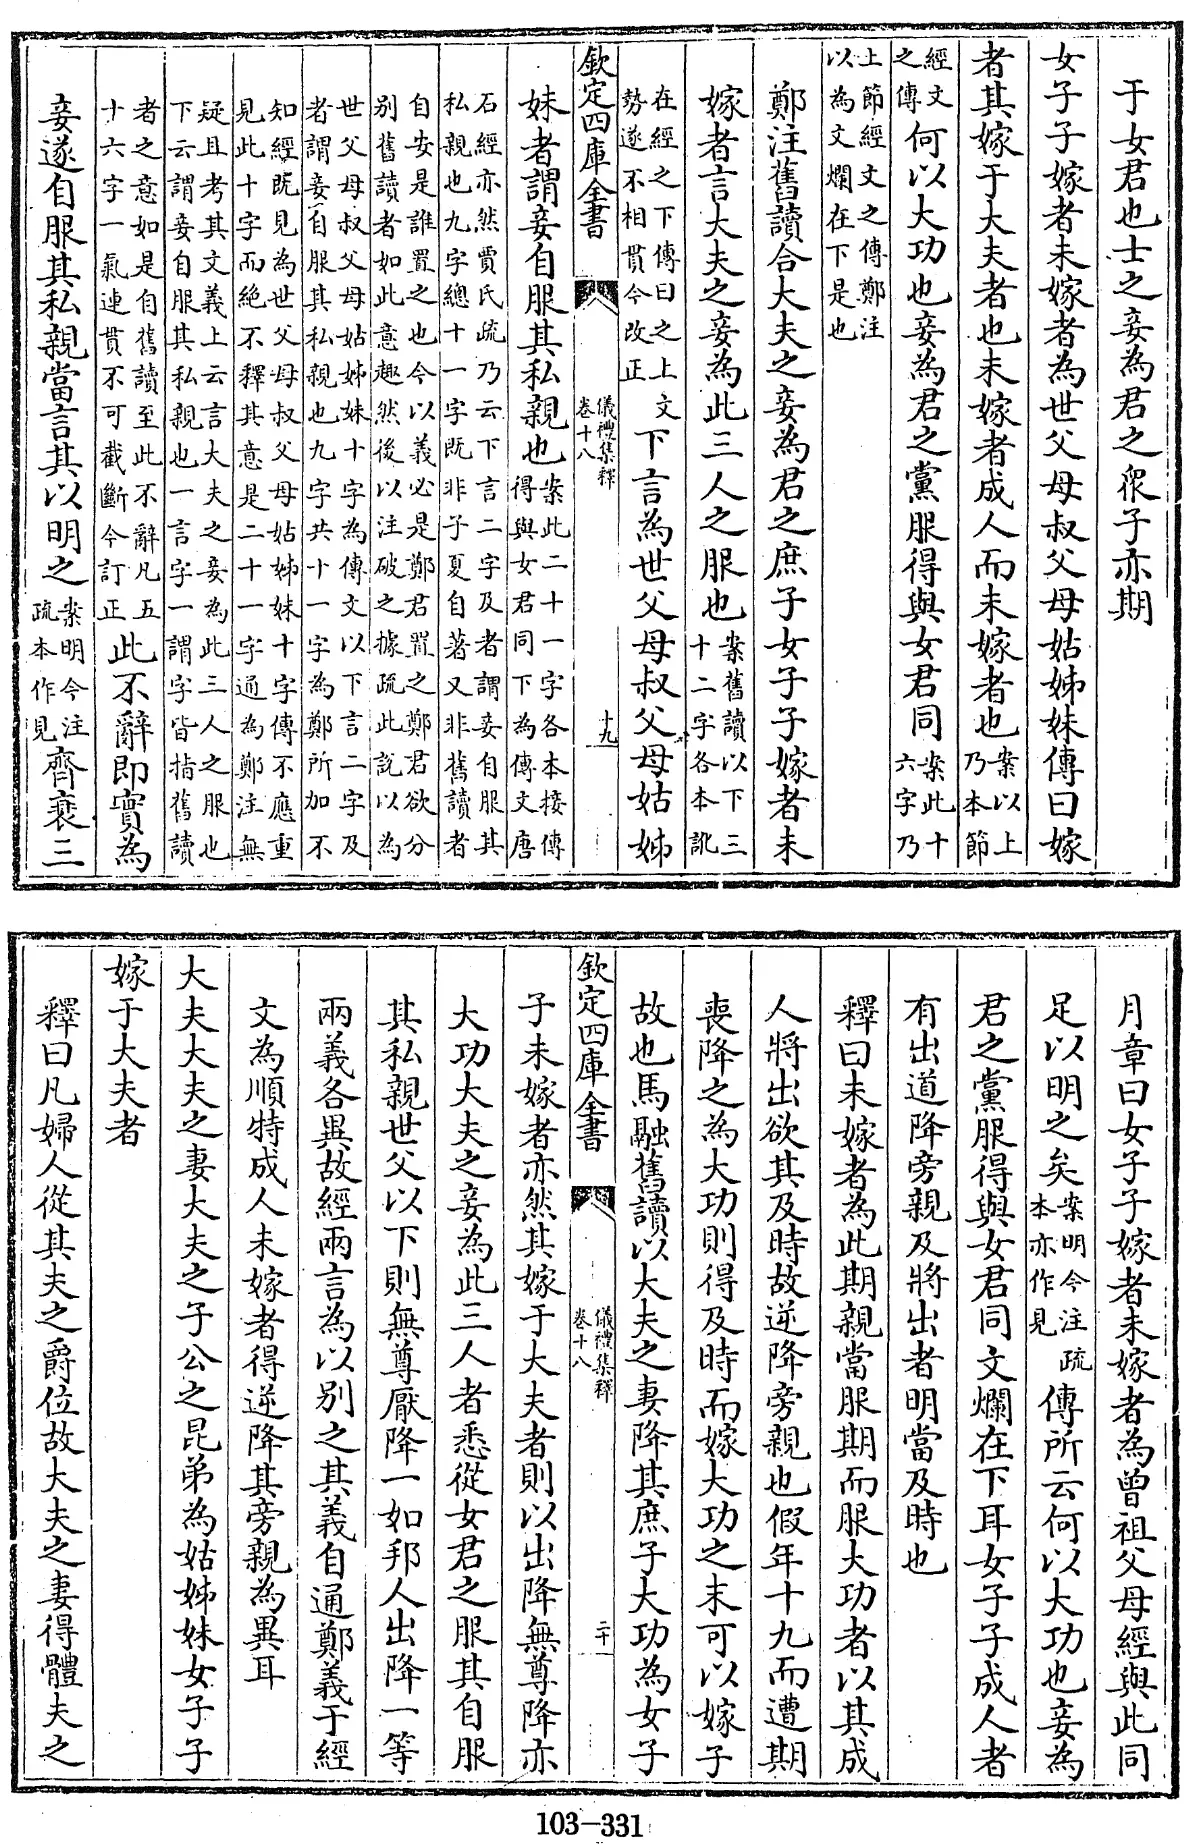 于女君也士之妾為君之衆子亦期
女子子嫁者未嫁者為世父母叔父母姑姊妹傳曰嫁
者其嫁于大夫者也未嫁者成人而未嫁者也案以上乃本節
經文之傳何以大功也妾為君之黨服得與女君同案此十六字乃
上節經文之傳鄭注以為文爛在下是也
鄭注舊讀合大夫之妾為君之庶子女子子嫁者未
嫁者言大夫之妾為此三人之服也案舊讀以下三十二字各本訛
在經之下傳曰之上文勢遂不相貫今改正下言為世父母叔父母姑姊
欽定四庫全書 儀禮集釋 卷十八 十九
妹者謂妾自服其私親也案此二十一字各本接傳得與女君同下為傳文唐
石經亦然賈氏疏乃云下言二字及者謂妾自服其私親也九字總十一字既非子夏自著又非舊讀者
自安是誰置之也今以義必是鄭君置之鄭君欲分别舊讀者如此意趣然後以注破之據疏此說以為
世父母叔父母姑姊妹十字為傳文以下言二字及者謂妾自服其私親也九字共十一字為鄭所加不
知經既見為世父母叔父母姑姊妹十字傳不應重見此十字而絶不釋其意是二十一字通為鄭注無
疑且考其文義上云言大夫之妾為此三人之服也下云謂妾自服其私親也一言字一謂字皆指舊讀
者之意如是自舊讀至此不辭凡五十六字一氣連貫不可截斷今訂正此不辭即實為
妾遂自服其私親當言其以明之案明今注疏本作見齊衰三
月章曰女子子嫁者未嫁者為曾祖父母經與此同
足以明之矣案明今注疏本亦作見傳所云何以大功也妾為
君之黨服得與女君同文爛在下耳女子子成人者
有出道降旁親及將出者明當及時也
釋曰未嫁者為此期親當服期而服大功者以其成
人將出欲其及時故逆降旁親也假年十九而遭期
喪降之為大功則得及時而嫁大功之末可以嫁子
故也馬融舊讀以大夫之妻降其庶子大功為女子
欽定四庫全書 儀禮集釋 卷十八 二十
子未嫁者亦然其嫁于大夫者則以出降無尊降亦
大功大夫之妾為此三人者悉從女君之服其自服
其私親世父以下則無尊厭降一如邦人出降一等
兩義各異故經兩言為以别之其義自通鄭義于經
文為順特成人未嫁者得逆降其旁親為異耳
大夫大夫之妻大夫之子公之昆弟為姑姊妹女子子
嫁于大夫者
釋曰凡婦人從其夫之爵位故大夫之妻得體夫之
103-331